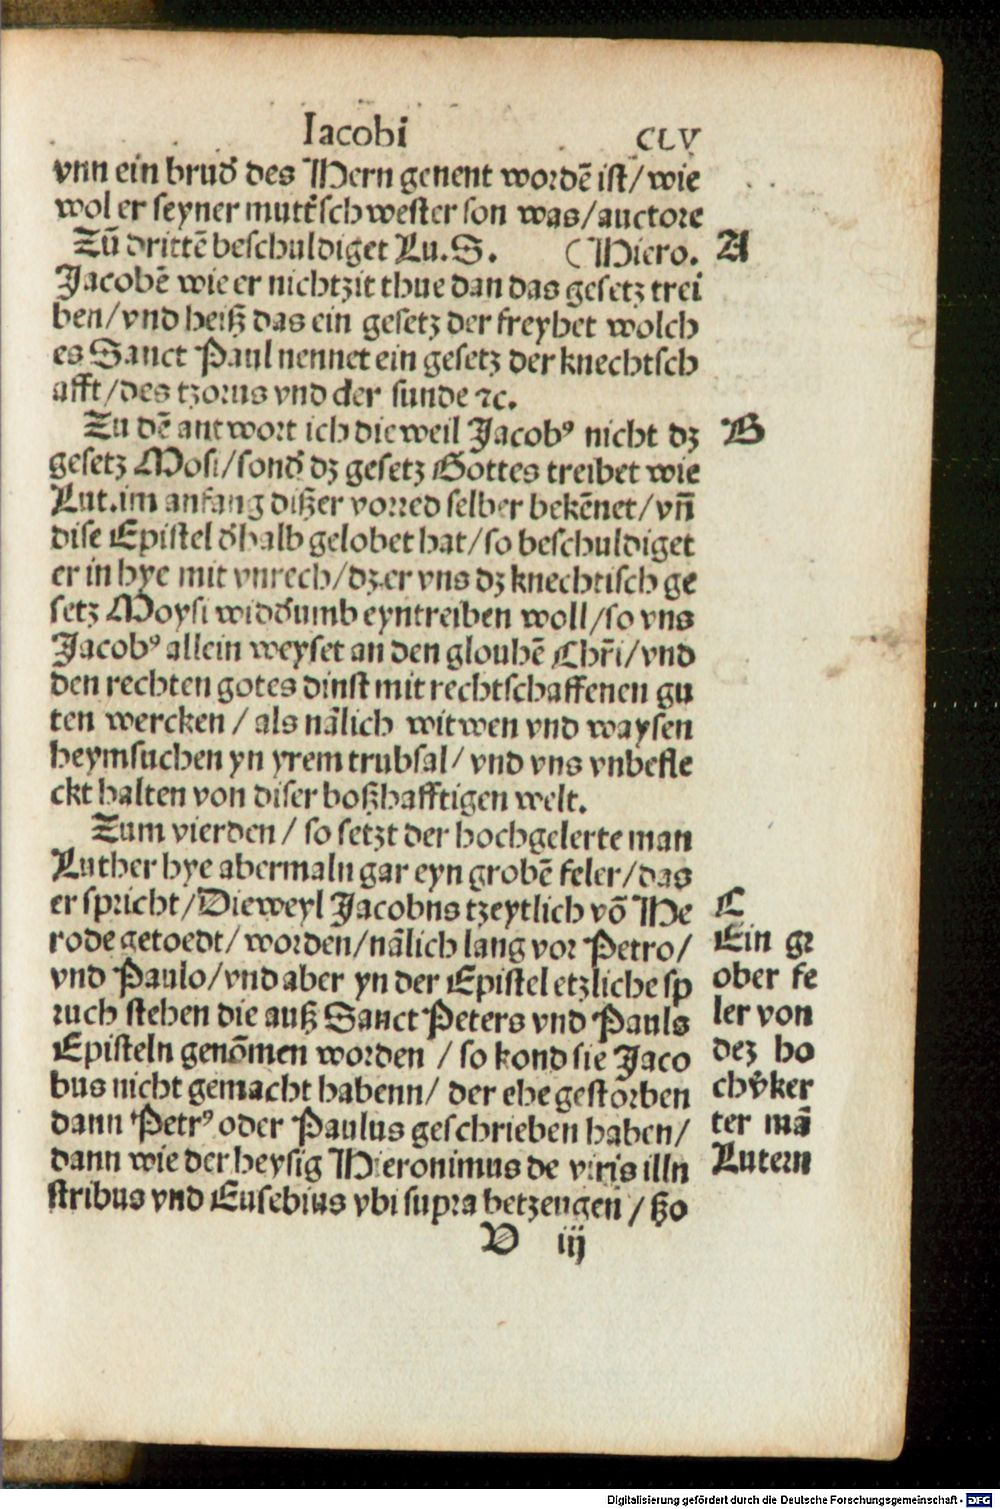 Iacobi CLV
vnn ein brud̕ des Hern genent wordē ist/ wie
wol er seyner mutt̕ schwester son was/ auctore
Zū drittē beschuldiget Lu. S. (Hiero. A
Jacobē wie er nichtzit thue dan das gesetz trei
ben/ vnd heiß das ein gesetz der freyhet wolch
es Sanct Paul nennet ein gesetz der knechtsch
afft/ des tzorns vnd der sunde ⁊c.
Zu dē antwort ich die weil Jacobꝰ nicht dz B
gesetz Mosi/ sond̕ dz gesetz Gottes treibet wie
Lut. im anfang dißer vorred selber bekēnet/ vn̄
dise Epistel d̕halb gelobet hat/ so beschuldiget
er in hye mit vnrech/ dz er vns dz knechtisch ge
setz Moysi widd̕umb eyntreiben woll/ so vns
Jacobꝰ allein weyset an den gloubē Chr̄i/ vnd
den rechten gotes dinst mit rechtschaffenen gu
ten wercken / als nālich witwen vnd waysen
heymsuchen yn yrem trubsal/ vnd vns vnbefle
ckt halten von diser boßhafftigen welt.
Zum vierden / so setzt der hochgelerte man
Luther hye abermaln gar eyn grobē feler/ das
er spricht/ Dieweyl Jacobus tzeytlich vō He
rode getoedt/ worden/ nālich lang vor Petro/
vnd Paulo/ vnd aber yn der Epistel etzliche sp
ruch stehen die auß Sanct Peters vnd Pauls
Episteln genōmen worden / so kond sie Jaco
bus nicht gemacht habenn/ der ehe gestorben
dann Petrꝰ oder Paulus geschrieben haben/
dann wie der heysig Hieronimus de viris illu
stribus vnd Eusebius vbi supra betzeugen / ßo
C
Ein gr
ober fe
ler von
dez ho
chv̕ker
ter mā
Lutern
V iij
Digitalisierung gefördert durch die Deutsche Forschungsgemeinschaft - DFG